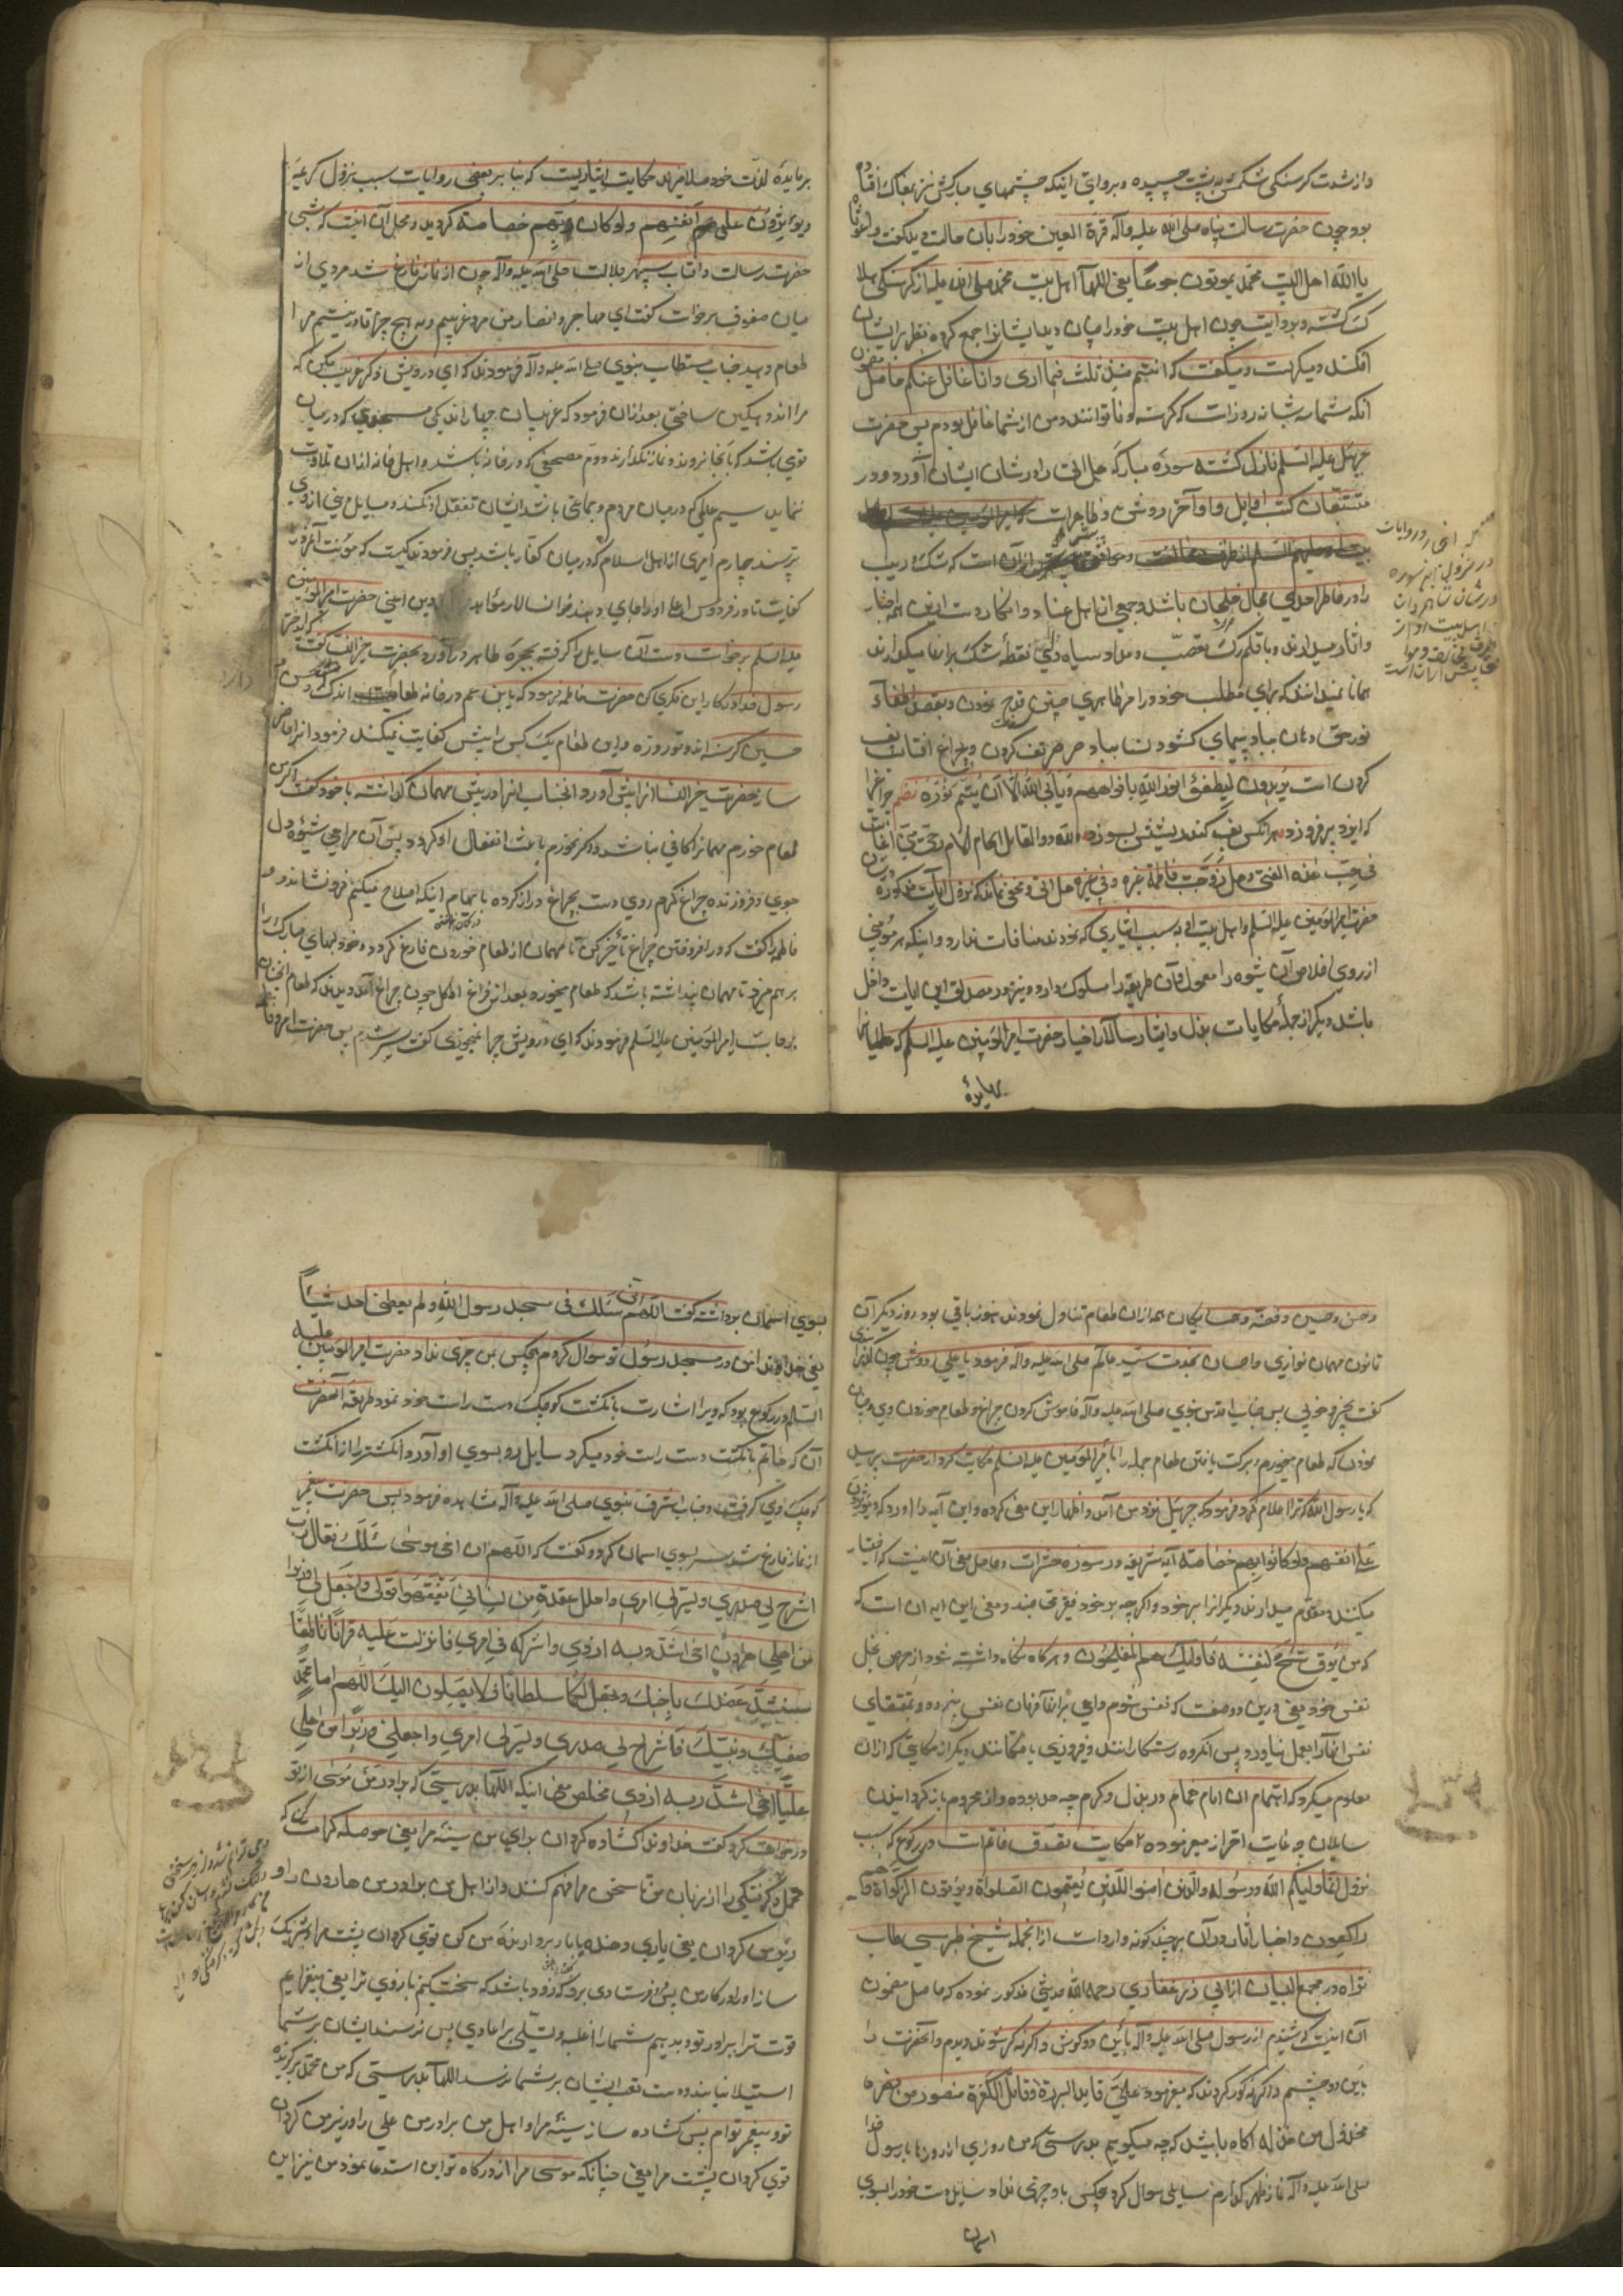 وازشدت کرسنکی شکمش به پشت چسپیده و بروایتی اینکه چشمهای مبارکش نیز بمغاک افتاده
بود چون حضرت رسالت پناه صلی الله علیه وآله قرة العین خود را بان حالت دید گفت واغوثاه
یا الله اهل البیت محمد یموتون جوعاً یعنی اللها اهل بیت محمد صلی الله علیه از کرسنکی هلاک
کشته و بروایت چون اهل بیت خود را چنان دید ایشانرا جمع کرده نظر بر ایشان
افکند و میکریست و میکفت که انتم منذ ثلث فیما اری وانا غافل عنکم حاصل مضمون
آنکه شما سه شبانه روز است که کرسنه و ناتوانند و من از شما غافل بودم پس حضرت
جبرئیل علیه السلم نازل کشته سوره مبارکه هل اتی را در شان ایشان آورد و در
متتبعان کتب اوایل و اواخر روشن و ظاهر است
است که شک و ریب
را در خاطر احدی مجال خلجان باشد و جمعی از اهل عناد و انکار دست از این همه اخبار
و اثار میدارند و با قلم رک تعصب و مداد سیاه دلی نقطهٔ شک بر انها میکذارند
همانا نمیدانند که برای مطلب خود در امر ظاهری چنین قدح نمودن و بقصد اطفاء
نور حق دهان بباد پیمای کشودن بباد صرصر تف کردن و چراغ افتاب پف
کردن است یریدون لیطفئوا نور الله بافواههم ویأبی الله الا ان یتم نوره نظم چراغیرا
که ایزد برفروزد هر انکس پف کند ریشش بسوزد و لله در القایل الام الام وحتی متی اعاتب
فی حب هذا الفتی وهل زوجت فاطمة غیره وفی غیره هل اتی و مخفی نماند که نزول ایات مذکوره در شان
حضرت امیرالمومنین علیه السلم و اهل بیت او به سبب ایثاری که نمودند منافات ندارد و اینکه هر مؤمنی
از روی اخلاص آن شیوه را معمول و آن طریقه را مسلوک دارد و نیز در مصداق این ایات داخل
باشد دیکر از جمله حکایات بذل و ایثار سالار اخیار حضرت امیرالمومنین علیه السلم که
بمایدهٔ
برمایدهٔ لذت خود صلا میزند حکایت ایثاریست که بنا بر بعضی روایات سبب نزول کریمه
ویؤثرون علی انفسهم ولو کان بهم خصاصة کردید و مجمل آن اینست که شبی
حضرت رسالت و افتاب سپهر جلالت صلی الله علیه وآله چون از نماز فارغ شد مردی از
میان صفوف برخواست کفت ای مهاجر و انصار من مرد غریبم و به هیچ چیز قادر نیستم مرا
طعام دهید جناب مستطاب نبوی صلی الله علیه وآله فرمودند که ای درویش ذکر غریب مکن که
مرا اندوهکین ساختی بعد از ان فرمود که غریبان چهار اند یکی مسجدی که در میان
قومی باشد که بانجا نروند و نماز نکذارند و دوم مصحفی که در خانه باشد و اهل خانه از ان تلاوت
ننمایند سیم عالمی که در میان مردم و جماعتی باشد ایشان تفقد او نکنند و مسایل دینی از وی
نپرسند چهارم اسیری از اهل اسلام که در میان کفار باشد پس فرمود کیست که مؤنت آنمرد را
کفایت تا در فردوس اعلی او را جای دهند
علیه السلم برخواست و دست آن سایل را کرفته بحجره طاهره در آورد و بحضرت خیر النسا کفت که ای دختر
رسول خدا در کار این فکری کن حضرت فاطمه فرمود که یابن عم در خانه اندک و حسن و
حسین کرسنه اند و تو روزه و این طعام یک کس را بیش کفایت نمیکند فرمود انرا حاضر
ساز حضرت خیر النسا انرا پیش آورد و انجناب انرا در پیش مهمان کذاشته با خود کفت اکر من
طعام خورم مهمانرا کافی نباشد و اکر نخورم باعث انفعال او کردد پس آن مراحی شیوه دل
جوی و فروزنده چراغ کرم روی دست بچراغ دراز کرده باتمام اینکه اصلاح میکنم فرو نشاند و
فاطمه را کفت که در افروختن چراغ تأخیر کن تا مهمان از طعام خوردن فارغ کردد و خود لبهای مبارک را
بر هم میزد تا مهمان پنداشته باشد که طعام میخورد و بعد از فراغ اکل چون چراغ آمد دیدند که طعام انجنان
برجاست امیرالمومنین علیه السلم فرمودند که ای درویش چرا نمیخوری کفت سیر شدم پس حضرت امیر و فاطمه
و حسن و حسین و فضه و همسایکان همه از ان طعام تناول نمودند هنوز باقی بود روز دیکر آن
قانون مهمان نوازی و احسان بخدمت سید عالم صلی الله علیه وآله فرمود یا علی دوش چون کذرانیدی
کفت بخیر و خوبی پس جناب اقدس نبوی صلی الله علیه وآله خاموش کردن چراغ و طعام خوردن وی و چنان
نمودن که طعام میخورم و برکت یافتن طعام جمله را بامیرالمومنین علیه السلم حکایت کرد از حضرت پرسید
که یا رسول الله که ترا اعلام کرد فرمود که جبرئیل نزد من آمد و اظهار این معنی کرده و این آیه را اورد که ویؤثرون
علی انفسهم ولو کان بهم خصاصة آیه شریفه در سوره حشر است و حاصل معنی آن اینست که اختیار
میکنند و مقدم میدارند دیکرانرا بر خود و اکرچه بر خود فقیر و محتاجند و معنی این ایه ان است که
که من یوق شح نفسه فاولئک هم المفلحون و هر که نکاه داشته شود از حرص و بخل
نفس خود یعنی در این دو صفت که نفس شوم داعی بر انها فرمان نفس نبرده و بمقتضای
نفس انها را بعمل نیاورد پس آنکروه رستکارانند و فیروزی یافتکانند دیکر از حکایتی که از ان
معلوم میکردد که اهتمام ان امام همام در بذل و کرم چه حد بوده و از محروم باز کردانیدن
سایلان چه غایت احتراز میفرموده حکایت تصدق خاتم است در رکوع که سبب
نزول انما ولیکم الله ورسوله والذین امنوا الذین یقیمون الصلوة ویؤتون الزکوة وهم
راکعون و اخبار و آثار در آن بر چند کونه وارد است از انجمله شیخ طبرسی طاب
ثراه در مجمع البیان از ابی ذر غفاری رحمه الله حدیثی مذکور نموده که حاصل مضمون
آن اینست که شنیدم از رسول صلی الله علیه وآله باین دو کوش و اکر نه کر شوند و دیدم و انحضرت را
باین دو چشم و اکر نه کور کردند که میفرمود علی قاید البررة وقاتل الکفرة منصور من نصره
مخذول من خذله اکاه باشید که چه میکویم بدرستی که من روزی از روزها با رسول خدا
صلی الله علیه وآله نماز ظهر کزاردم سایلی سوال کرد هیچکس باو چیزی نداد سایل دست خود را بسوی
اسمان
بسوی اسمان برداشته کفت اللهم انی سئلک فی مسجد رسول الله ولم یعطنی احد شیئاً
یعنی خداوندا من در مسجد رسول تو سوال کردم هیچکس بمن چیزی نداد حضرت امیرالمومنین علیه
السلم در رکوع بود که ویرا اشارت بانکشت کوچک دست راست خود نمود طریقه آنحضرت
آن که خاتم بانکشت دست راست خود میکرد سایل رو بسوی او آورد و انکشتر را از انکشت
کوچک وی کرفت و جناب اشرف نبوی صلی الله علیه وآله مشاهده فرمود پس حضرت پیغمبر
از نماز فارغ شد سر بسوی اسمان کرده و کفت که اللهم ان اخی موسی سئلک فقال رب
اشرح لی صدری ویسر لی امری واحلل عقدة من لسانی یفقهوا قولی واجعل لی وزیرا
من اهلی هارون اخی اشدد به ازری واشرکه فی امری فانزلت علیه قرآنا ناطقا
سنشد عضدک باخیک ونجعل لکما سلطانا فلا یصلون الیک اللهم انا محمد
صفیک ونبیک فاشرح لی صدری ویسر لی امری واجعل لی وزیرا من اهلی
علیا اخی اشدد به ازری مخلص معنی اینکه اللها بدرستی که برادر من موسی از تو
درخواست کرد کفت خداوندا کشاده کردان برای من سینه مرا یعنی حوصله کرامت کن که
و کرفتکی را از زبان من تا سخن مرا فهم کنند و از اهل من برادر من هارون را
وزیر من کردان یعنی یاری دهنده یا بار بردارنده من کن قوی کردان پشت مرا و شریک
ساز او را در کار من پس فرستادی برو که زود باشد که سخت کنیم بازوی ترا یعنی بیفزایم
قوت ترا ببرادر تو و بدهیم شما را غلبه و تسلی بر اعادی پس نرسند ایشان بر شما
استیلا نیابند و دست تعب ایشان بر شما نرسد اللها بدرستی که من محمد برکزیده
تو و پیغمبر توام پس کشاده ساز سینه مرا و اهل من برادر من علی را وزیر من کردان
قوی کردان پشت مرا یعنی چنانکه موسی مرا از درکاه تو این استدعا نمود من نیز این